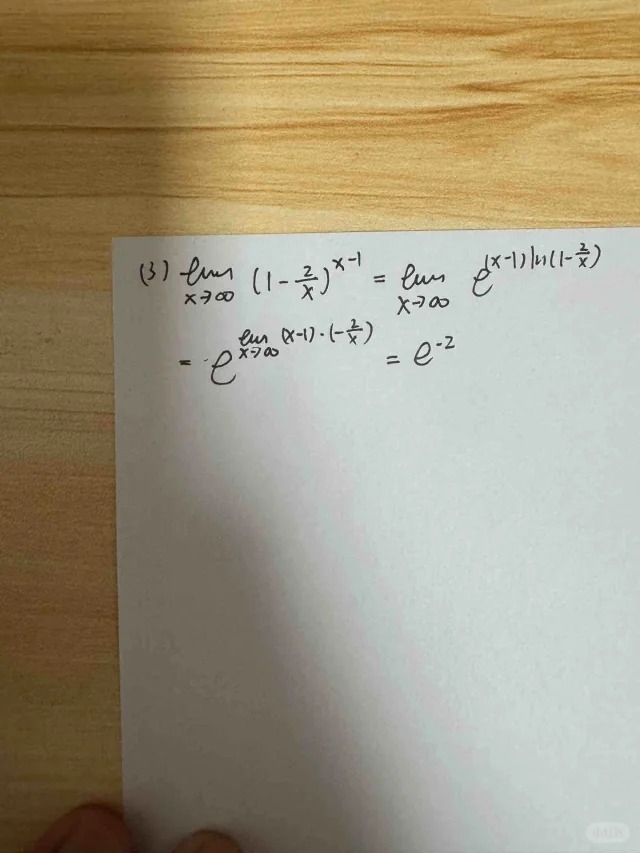 (3) lim x→∞ (1-2/x)^(x-1) = lim x→∞ e^((x-1)ln(1-2/x))
= e^(lim x→∞ (x-1)·(-2/x)) = e^-2